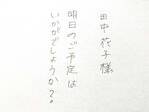 田中花子様
明日のご予定は
いかがでしょうか?